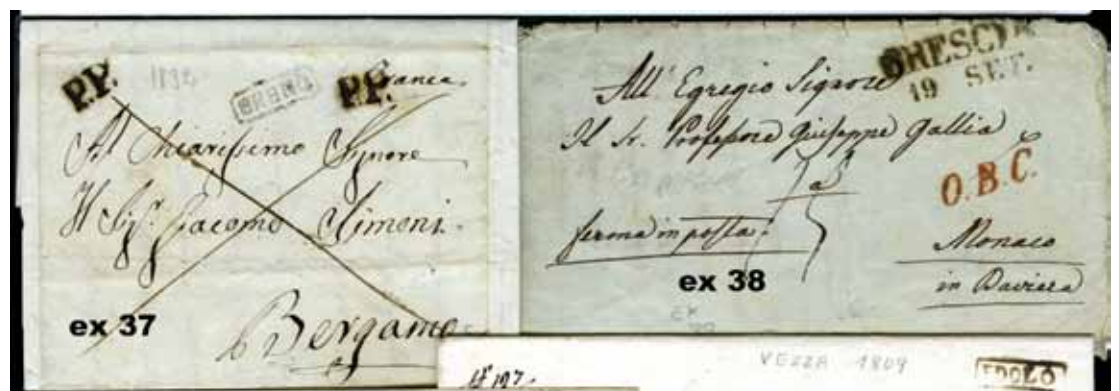 P.P.
BRENO
P.P.
Franca
Al Chiarissimo Signore
Il Sigr. Giacomo Simoni.
ex 37
Bergamo
BRESCIA
19 SET.
All' Egregio Signore
Il Sr. Professore Giuseppe Gallia
O.B.C.
ferma in posta.
Monaco
ex 38
in Baviera
No 127.
VEZZA 1809
EDOLO